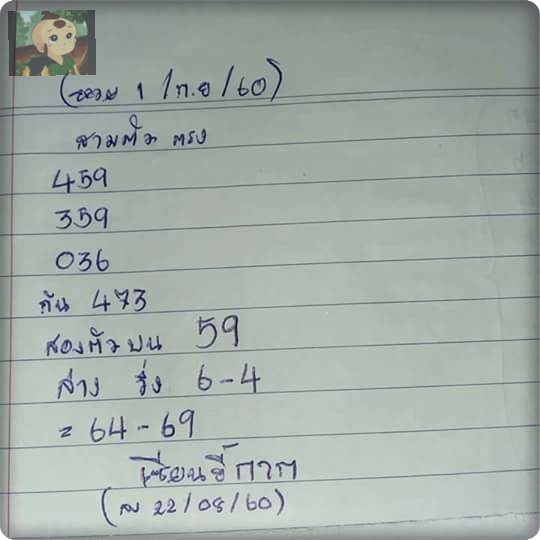 (หวย 1 / ก.ย / 60)
สามตัว ตรง
459
359
036
กัน 473
สองตัวบน 59
ล่าง วิ่ง 6-4
= 64-69
เซียนขี้กาก
(ลว 22/08/60)